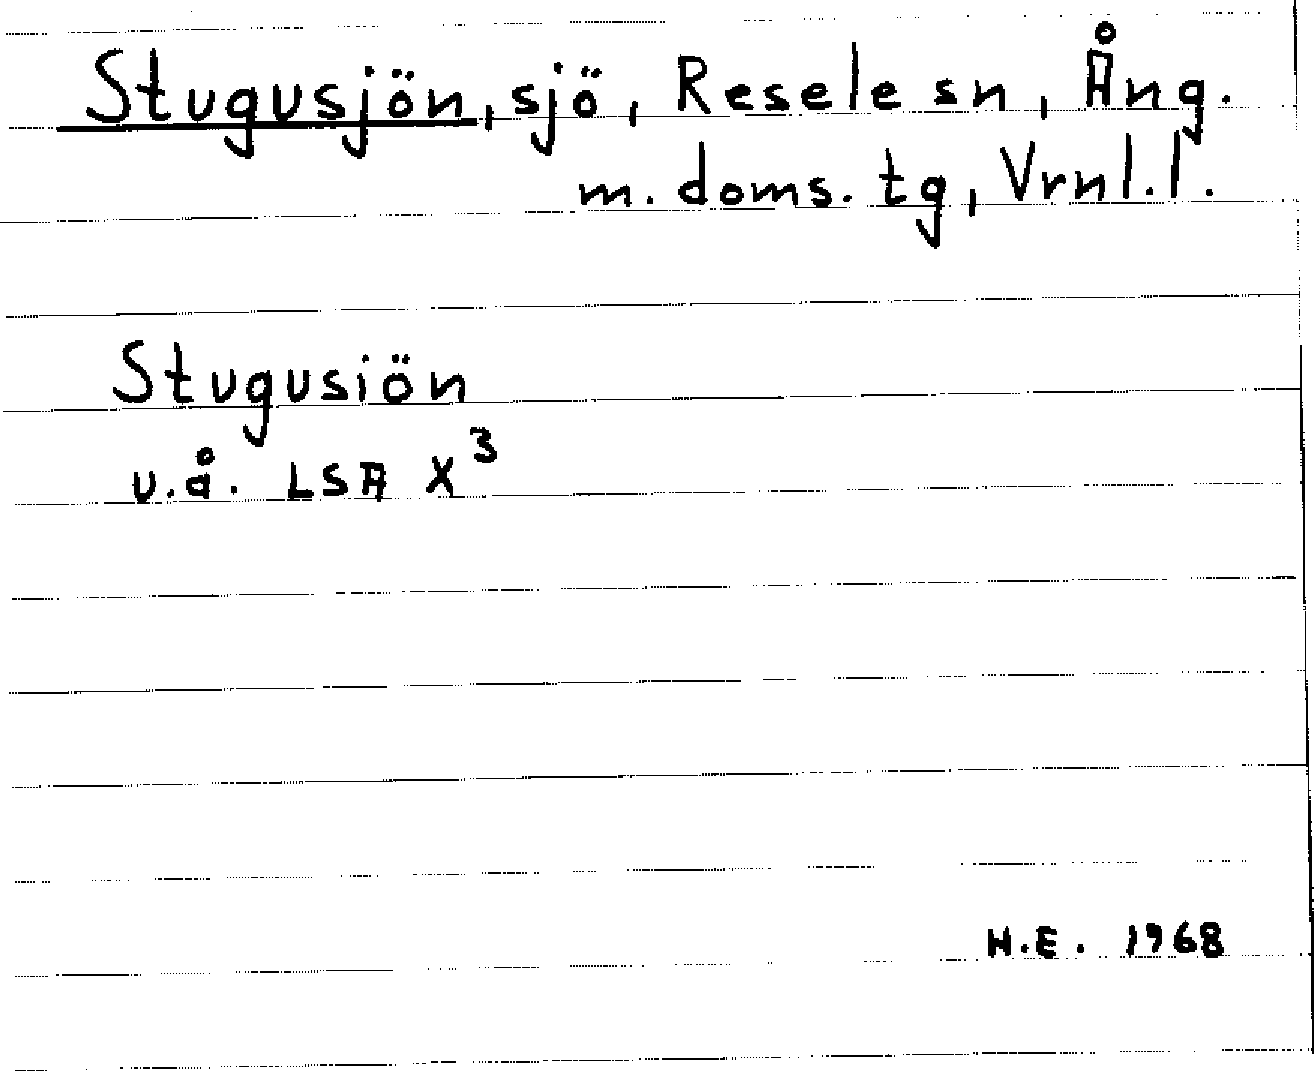 Stugusjön, sjö, Resele sn, Ång.
m. doms. tg, Vrnl.l.
Stugusiön
u.å. LSA X³
H.E. 1968